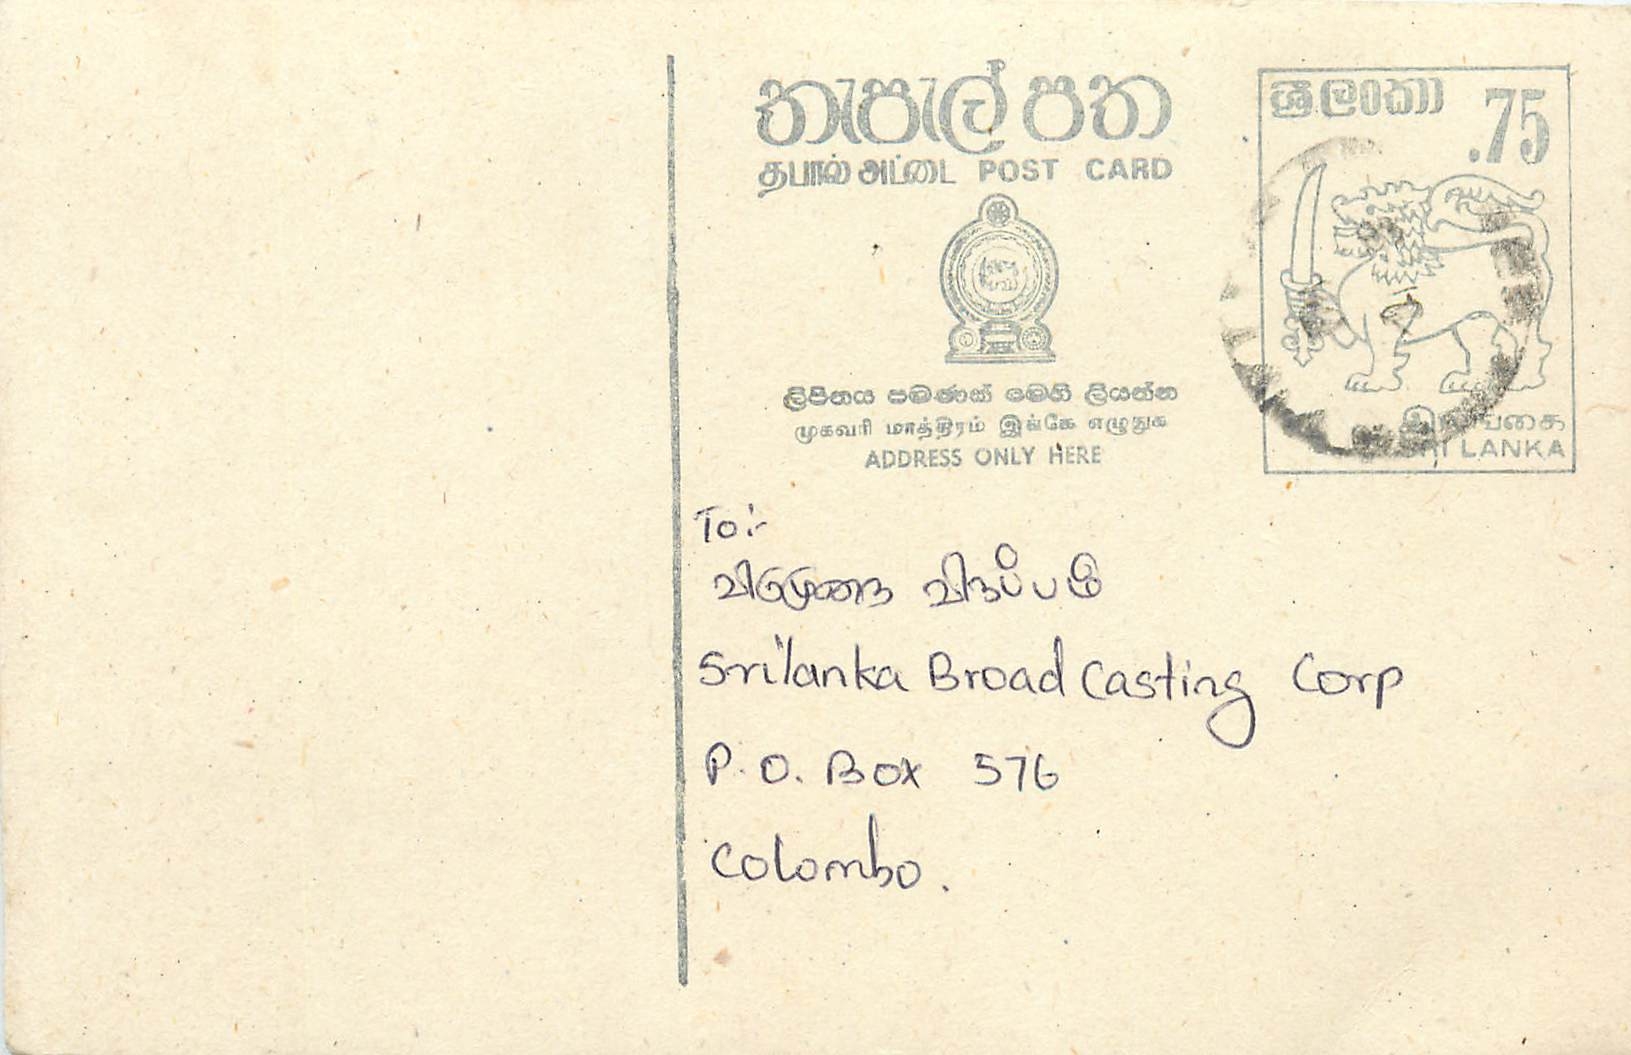 තැපැල් පත
தபால் அட்டை POST CARD
ශ්‍රී ලංකා .75
ලිපිනය පමණක් මෙහි ලියන්න
முகவரி மாத்திரம் இங்கே எழுதுக
ADDRESS ONLY HERE
இலங்கை
SRI LANKA
To:-
விருப்பம்
Srilanka Broad Casting Corp
P.O. Box 576
Colombo.